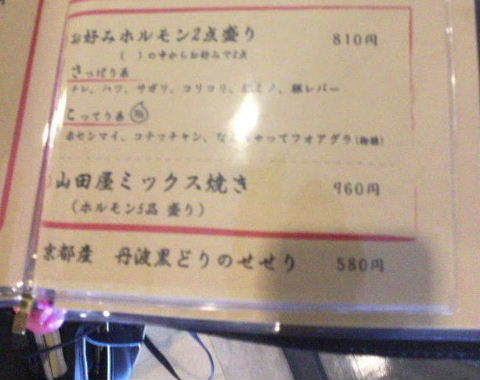 お好みホルモン2点盛り 810円
( )の中からお好みで2点
さっぱり系
ハツ、サガリ、コリコリ、ミノ、豚レバー
こってり系
赤センマイ、コテッチャン、なんちゃってフォアグラ
山田屋ミックス焼き 960円
(ホルモン5品 盛り)
京都産 丹波黒どりのせせり 580円